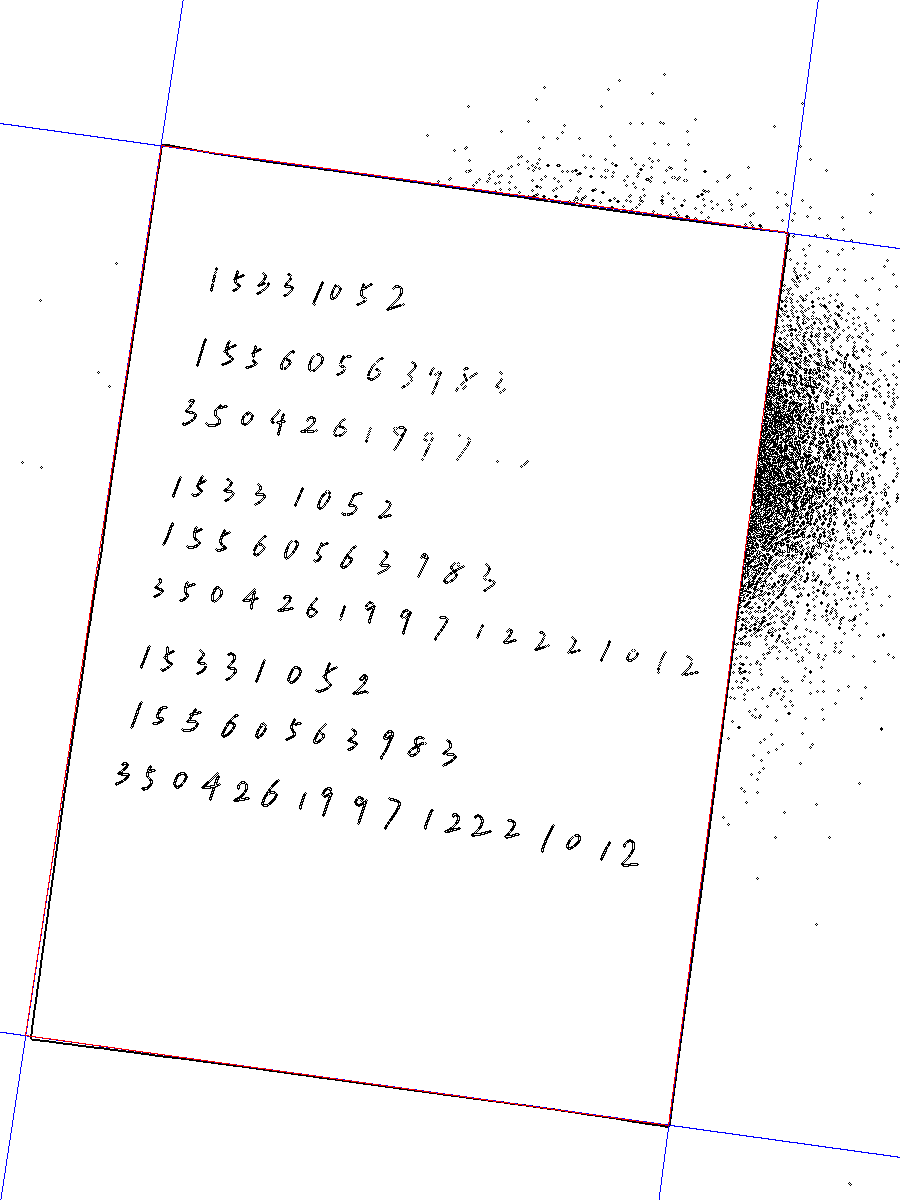 15331052
15560563983
3504261997
15331052
15560563983
350426199712221012
15331052
15560563983
350426199712221012